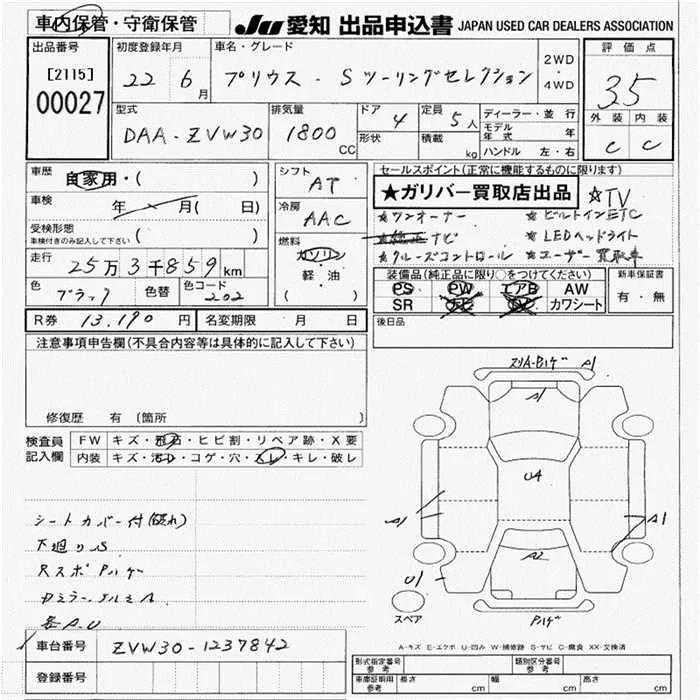 車内保管・守衛保管
JU 愛知 出品申込書 JAPAN USED CAR DEALERS ASSOCIATION
出品番号
[2115]
00027
初度登録年月
22 6月
車名・グレード
プリウス - Sツーリングセレクション
2WD
4WD
評価点
35
外装 内装
C C
型式
DAA-ZVW30
排気量
1800 CC
ドア 4
形状
定員 5人
積載 kg
ディーラー・並行
モデル年式 年
ハンドル 左・右
車歴 自家用・( )
車検 年 月( 日)
受検形態
車検付きのみ記入して下さい ( )
走行 25万3千859km
色 ブラック 色替 色コード 202
シフト AT
冷房 AAC
燃料
ガソリン
軽・油
( )
セールスポイント(正常に機能するものに限ります)
★ガリバー買取店出品 ☆TV
★ワンオーナー ★ビルトインETC
★純正ナビ ★LEDヘッドライト
★クルーズコントロール ★ユーザー買取車
装備品(純正品に限り○をつけてください)
PS PW エアB AW
SR ナビ カワシート
新車保証書
有・無
R券 13,190円 名変期限 月 日
後日品
注意事項申告欄(不具合内容等は具体的に記入して下さい)
修復歴 有 (箇所 )
検査員
記入欄
FW キズ・飛石・ヒビ割・リペア跡・X要
内装 キズ・汚レ・コゲ・穴・スレ・キレ・破レ
シートカバー付(破れ)
下廻りS
RスポPハゲ
各A.U
A1
A1
U4
A1
A1
A2
U1
Pハゲ
スペア
A-キズ E-エクボ U-凹み W-補修跡 S-サビ C-腐食 XX-交換済
車台番号 ZVW30-1237842
登録番号
型式指定番号 参考
類別区分番号 参考
車庫証明用 参考 長さ cm 幅 cm 高さ cm